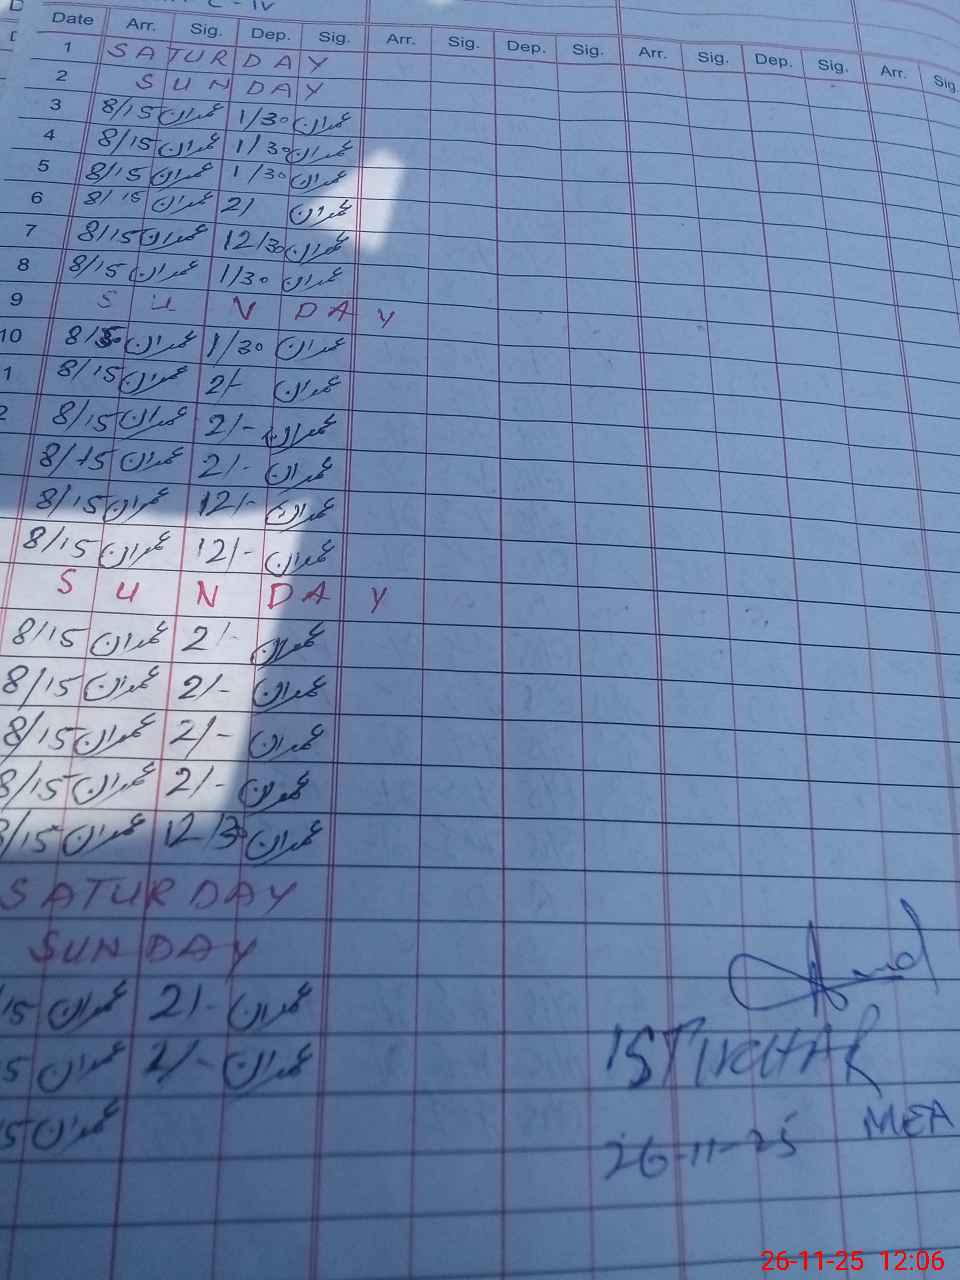 C-IV
Date Arr. Sig. Dep. Sig. Arr. Sig. Dep. Sig. Arr. Sig. Dep. Sig. Arr. Sig.
1 SATURDAY
2 SUNDAY
3 8/15 عمران 1/30 عمران
4 8/15 عمران 1/30 عمران
5 8/15 عمران 1/30 عمران
6 8/15 عمران 2/ عمران
7 8/15 عمران 12/30 عمران
8 8/15 عمران 1/30 عمران
9 SUNDAY
10 عمران 1/30 عمران
1 8/15 عمران 2/- عمران
2 8/15 عمران 2/- عمران
8/15 عمران 2/- عمران
8/15 عمران 12/- عمران
8/15 عمران 12/- عمران
SUNDAY
8/15 عمران 2/- عمران
8/15 عمران 2/- عمران
8/15 عمران 2/- عمران
8/15 عمران 2/- عمران
8/15 عمران 12/30 عمران
SATURDAY
SUNDAY
15 عمران 2/- عمران
5 عمران 2/- عمران
5 عمران
MEA
26-11-25
26-11-25 12:06